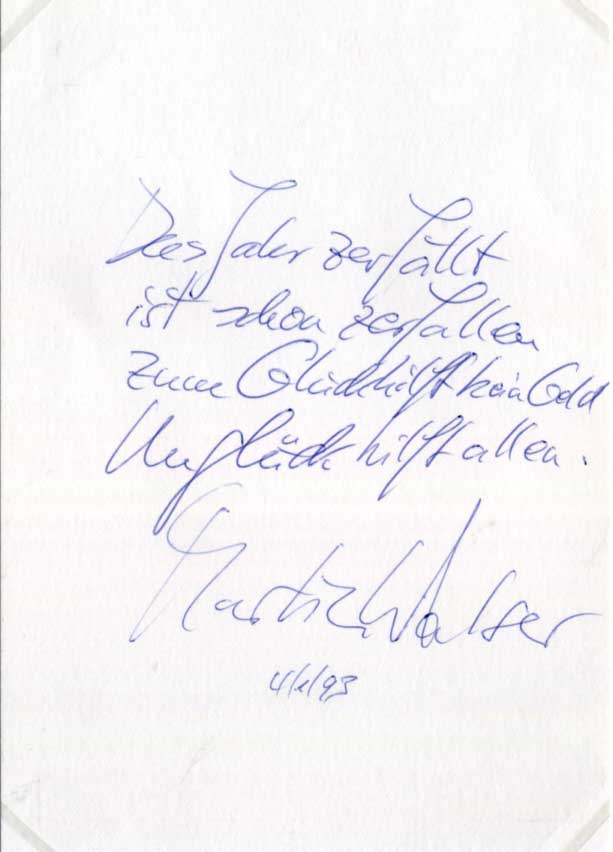 Das Jahr zerfällt
ist schon zerfallen
Zum Glück hilft kein Gold
Unglück hilft allen.
Martin Walser
4/1/93